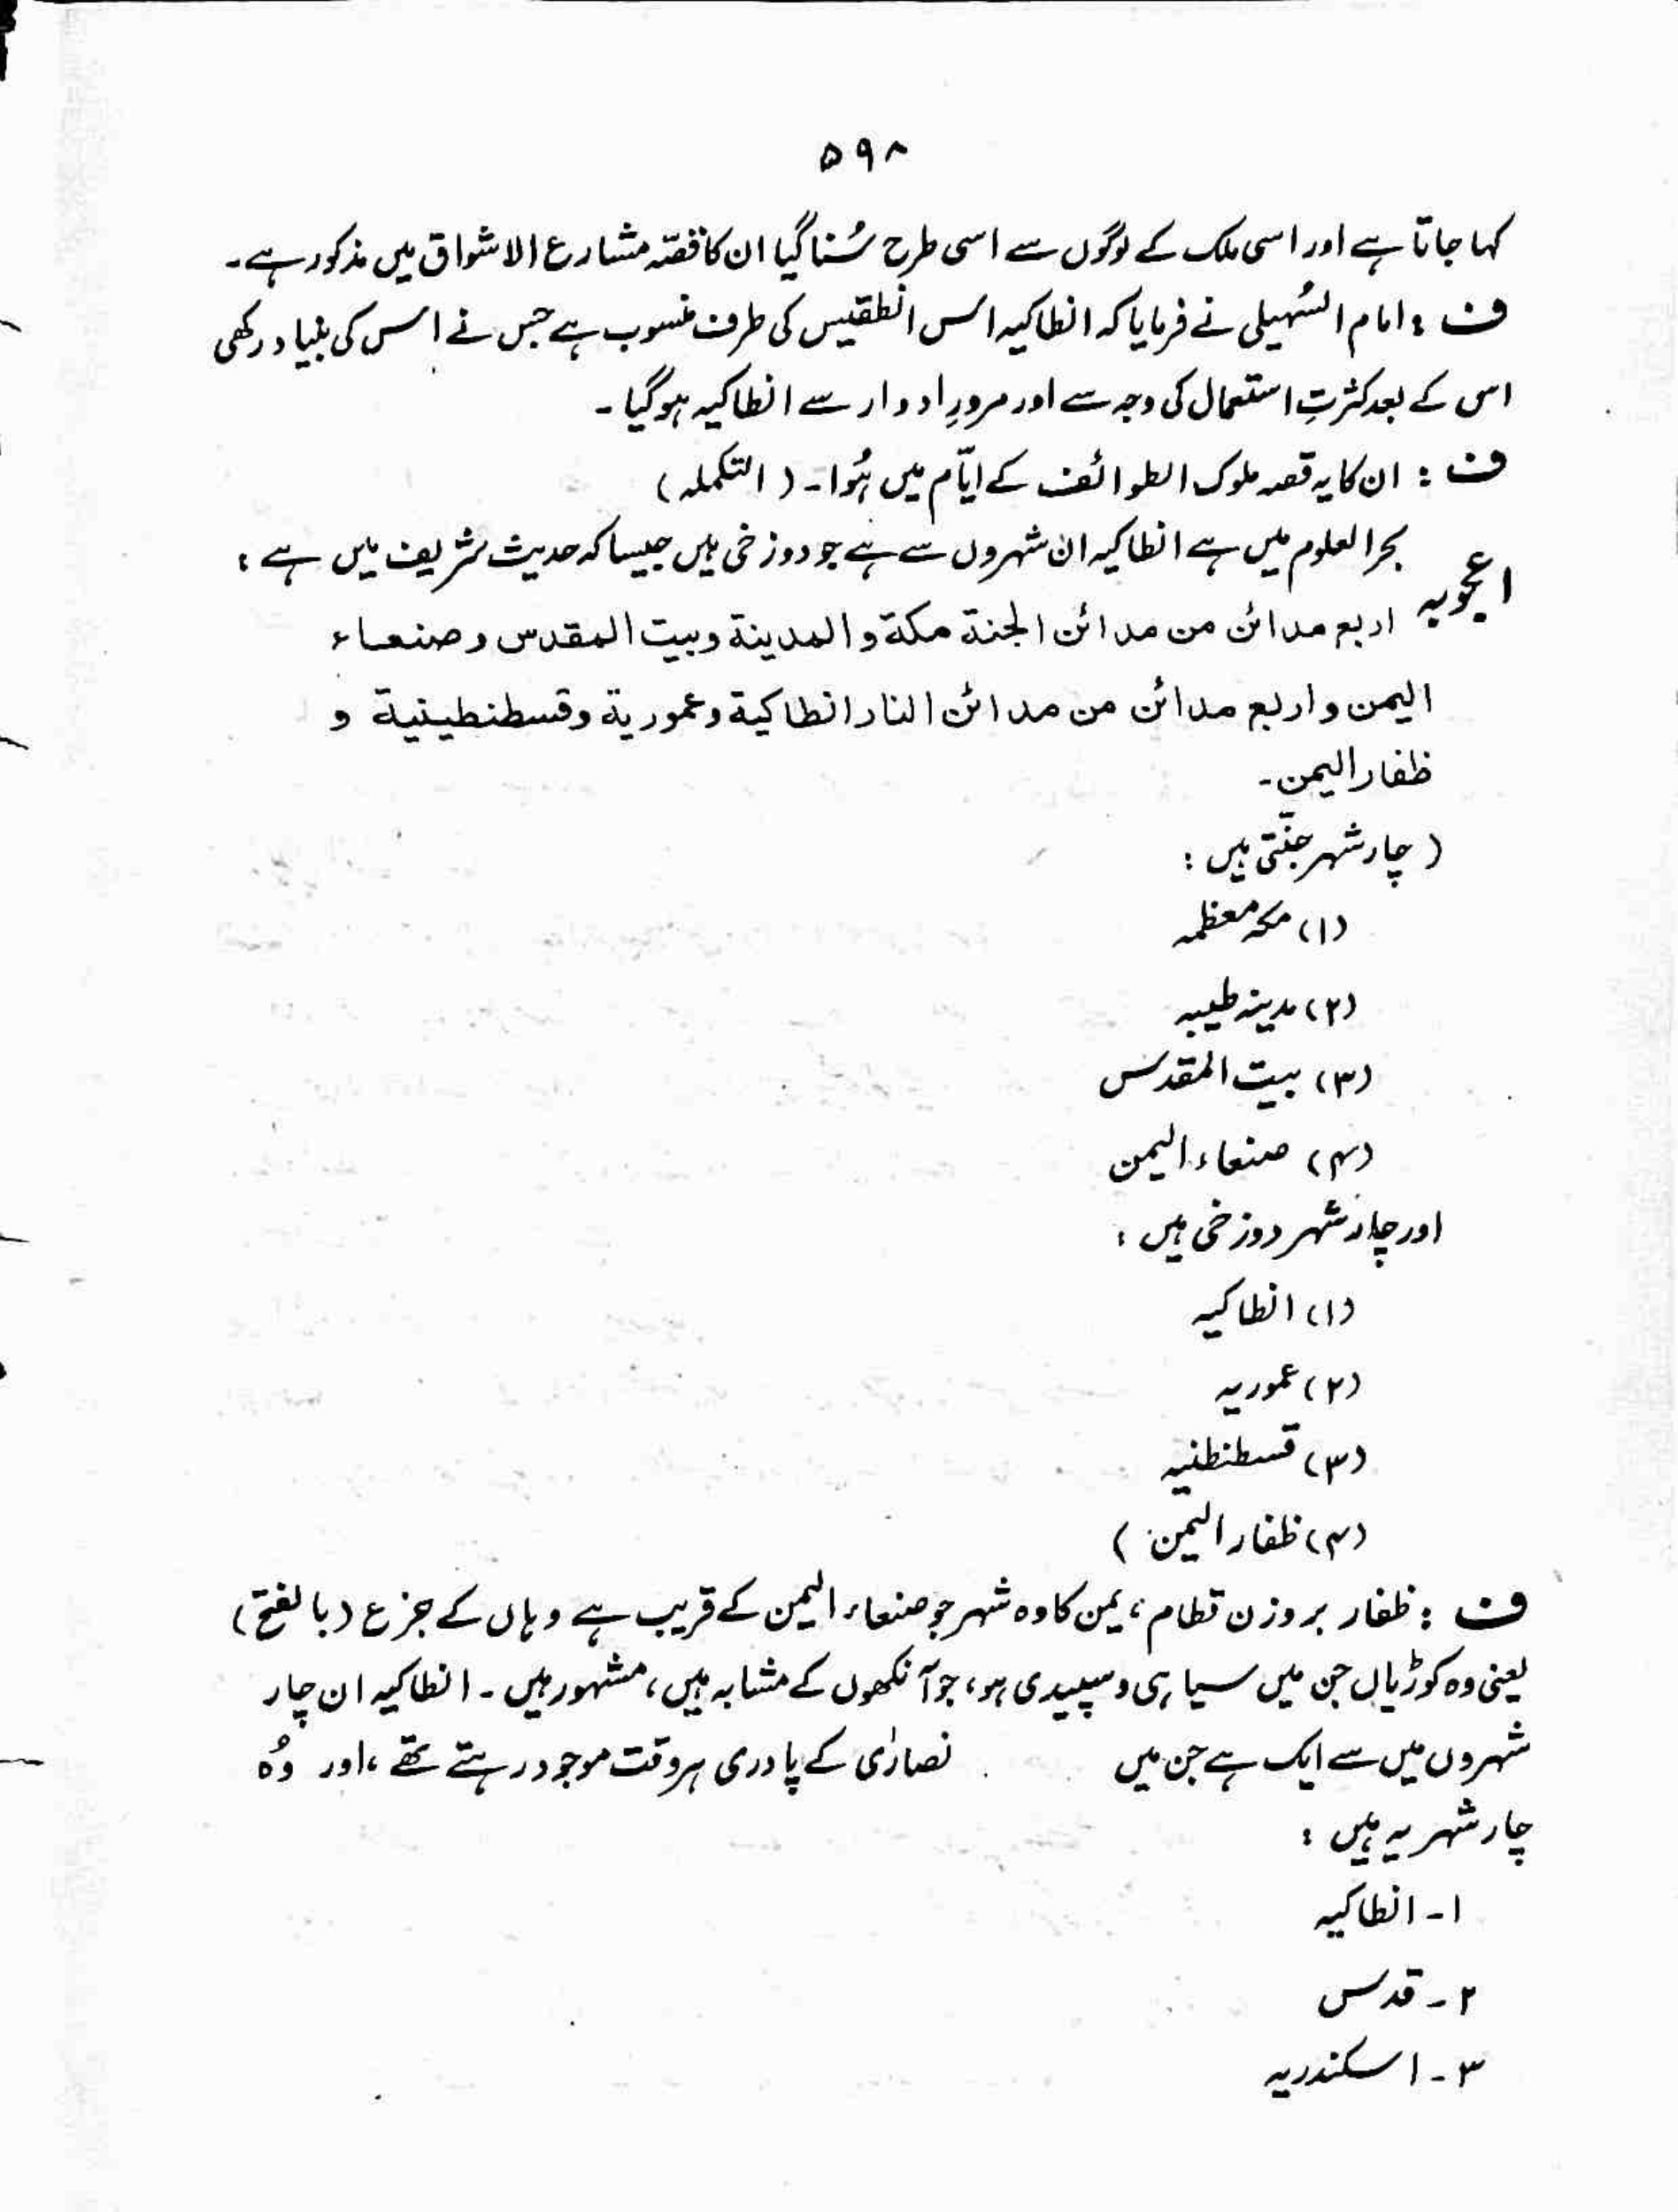 ۵۹۸
کہا جاتا ہے اور اسی ملک کے لوگوں سے اسی طرح سُنا گیا ان کا قصّہ مشارع الاشواق میں مذکور ہے۔
ف : امام السُہیلی نے فرمایا کہ انطاکیہ اس انطقیس کی طرف منسوب ہے جس نے اس کی بنیاد رکھی
اس کے بعد کثرتِ استعمال کی وجہ سے اور مرورِ ادوار سے انطاکیہ ہوگیا۔
ف : ان کا یہ قصہ ملوک الطوائف کے ایّام میں ہُوا۔ (التکملہ)
اعجوبہ بحرالعلوم میں ہے انطاکیہ ان شہروں سے ہے جو دوزخی ہیں جیسا کہ حدیث شریف میں ہے :
اربع مدائن من مدائن الجنة مكة والمدينة وبيت المقدس وصنعاء
اليمن واربع مدائن من مدائن النار انطاكية وعمورية وقسطنطينية و
ظفار اليمن۔
(چار شہر جنّتی ہیں :
(۱) مکہ معظمہ
(۲) مدینہ طیبہ
(۳) بیت المقدس
(۴) صنعاء الیمن
اور چار شہر دوزخی ہیں :
(۱) انطاکیہ
(۲) عموریہ
(۳) قسطنطنیہ
(۴) ظفار الیمن )
ف : ظفار بروزن قطام، یمن کا وہ شہر جو صنعاء الیمن کے قریب ہے وہاں کے جزع (بالفتح)
یعنی وہ کوڑیاں جن میں سیاہی و سپیدی ہو، جو آنکھوں کے مشابہ ہیں، مشہور ہیں۔ انطاکیہ ان چار
شہروں میں سے ایک ہے جن میں نصارٰی کے پادری ہر وقت موجود رہتے تھے، اور وُہ
چار شہر یہ ہیں :
۱۔ انطاکیہ
۲۔ قدس
۳۔ اسکندریہ